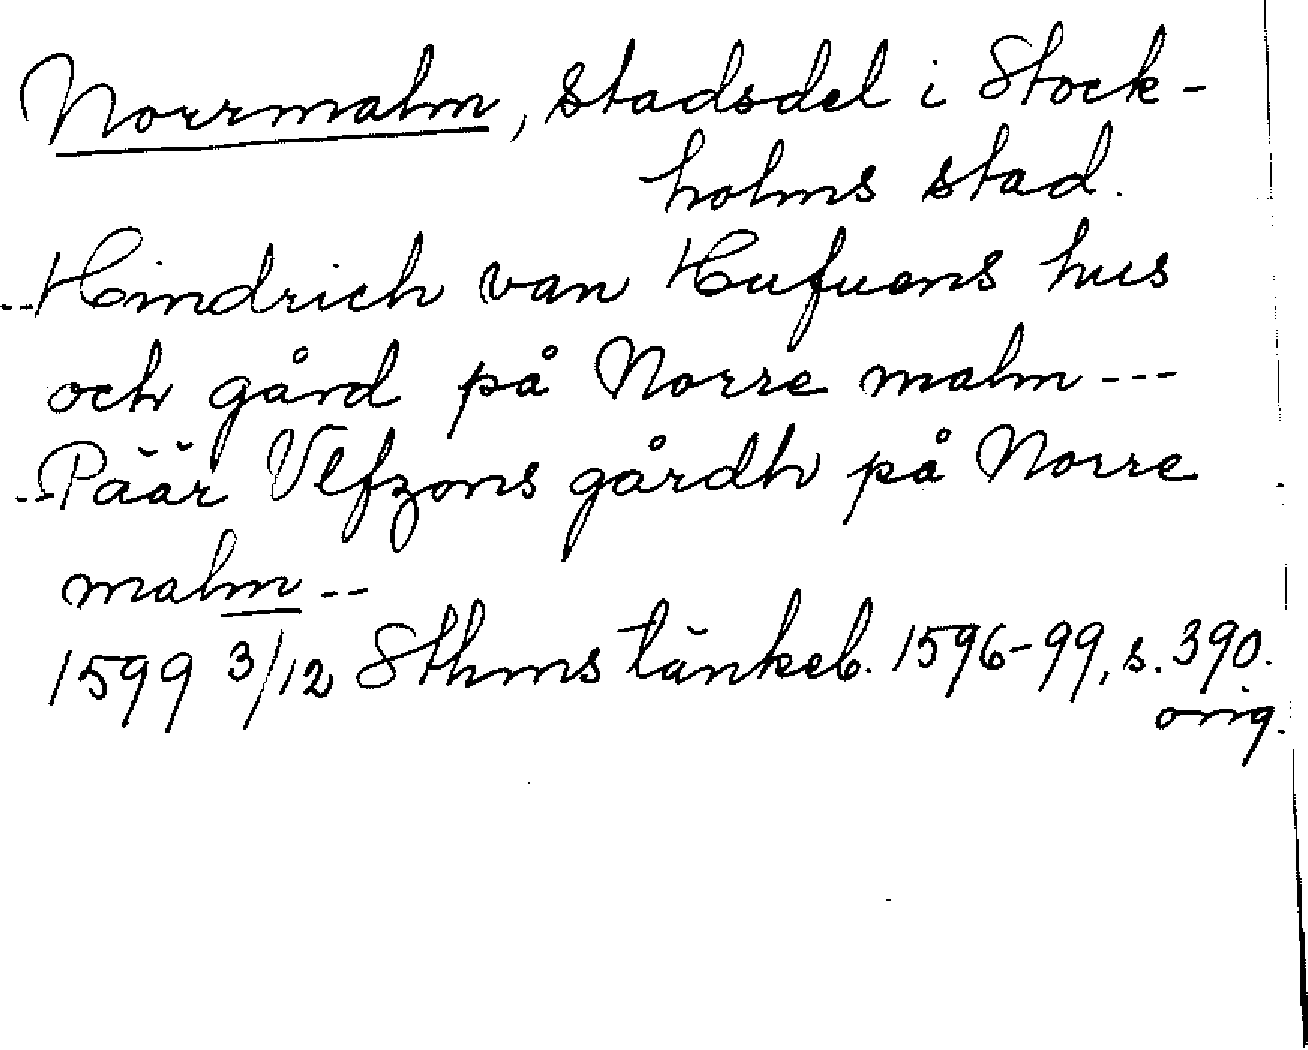 Norrmalm, stadsdel i Stock-
holms stad.
--Hindrich van Hufuens hus
och gård på Norre malm---
--Päär Vlfzons gårdh på Norre
malm--
1599 3/12 Sthms tänkeb. 1596-99, s. 390.
orig.